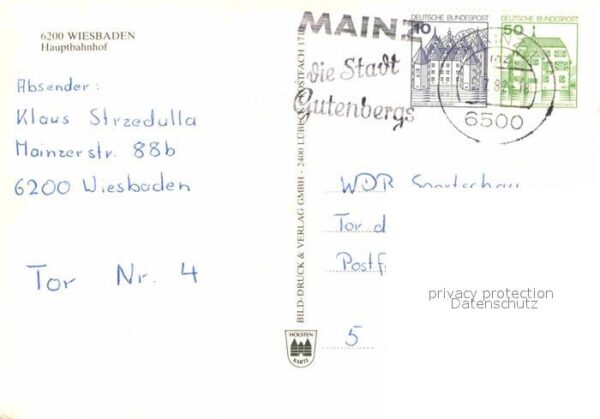 6200 WIESBADEN
Hauptbahnhof
Absender:
Klaus Strzedulla
Mainzerstr. 88b
6200 Wiesbaden
Tor Nr. 4
MAINZ
die Stadt
Gutenbergs
DEUTSCHE BUNDESPOST
10
DEUTSCHE BUNDESPOST
50
6500
BILD-DRUCK & VERLAG GMBH - 2400 LÜBECK
WDR Sportschau
Tor d
Postf
5
privacy protection
Datenschutz
HOLSTEN
KARTE